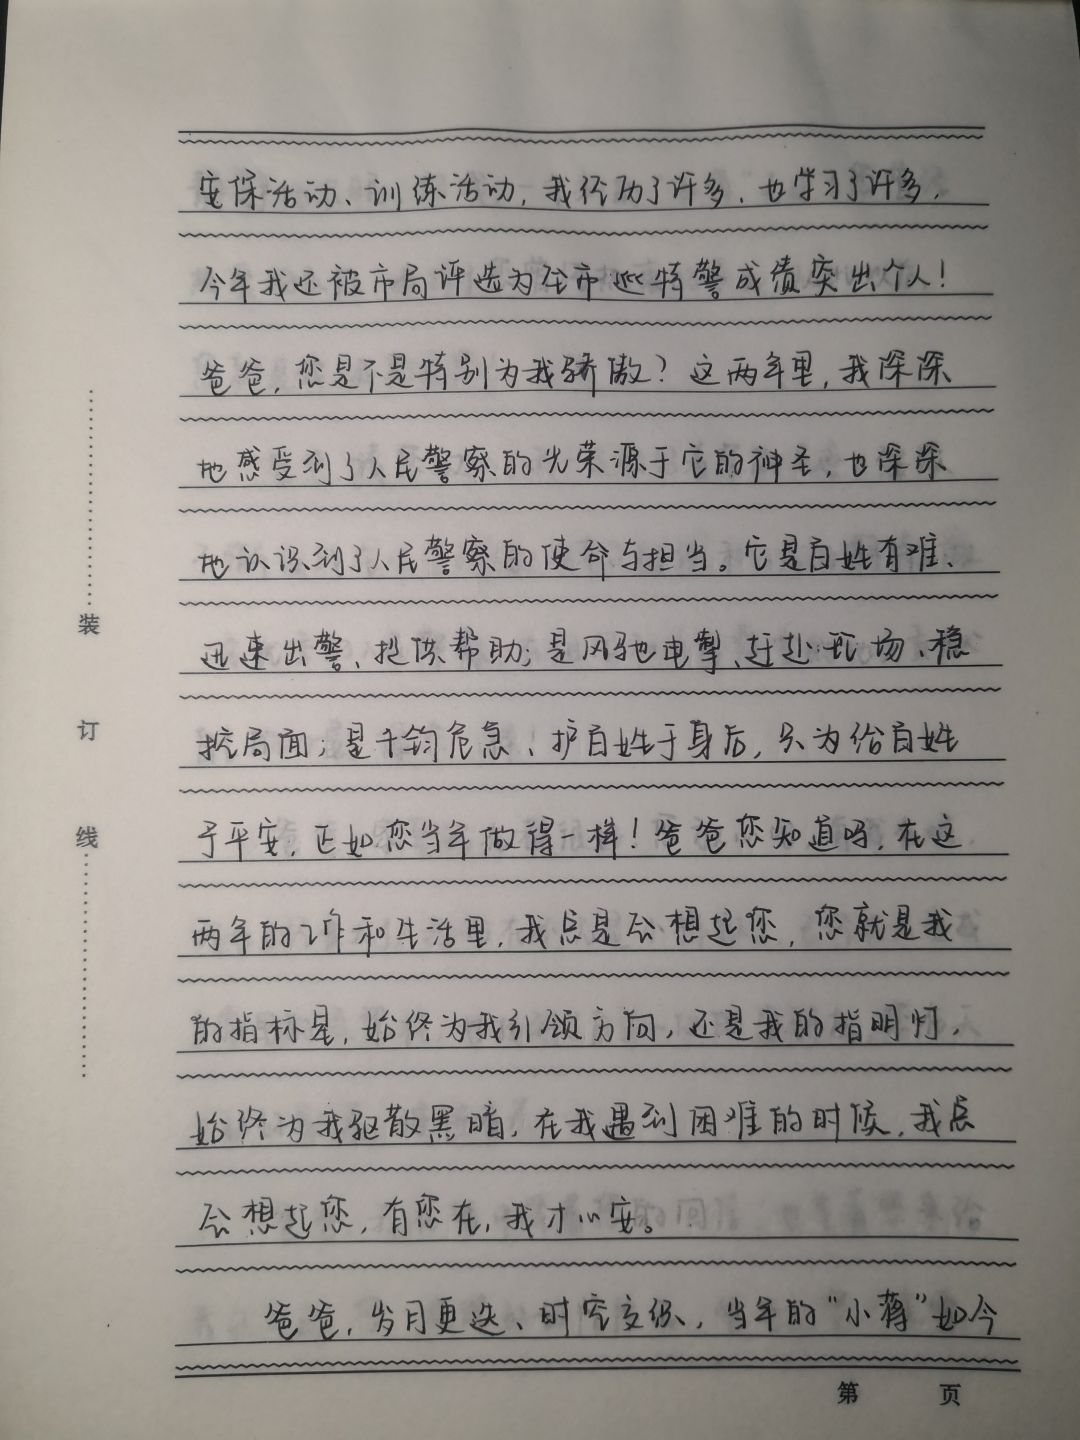 安保活动、训练活动，我经历了许多，也学习了许多，
今年我还被市局评选为全市巡特警成绩突出个人！
爸爸，您是不是特别为我骄傲？这两年里，我深深
地感受到了人民警察的光荣源于它的神圣，也深深
地认识到了人民警察的使命与担当。它是百姓有难、
迅速出警、提供帮助；是风驰电掣、赶赴现场、稳
控局面；是千钧危急、护百姓于身后，只为给百姓
予平安，正如您当年做得一样！爸爸您知道吗，在这
两年的工作和生活里，我总是会想起您，您就是我
的指标是，始终为我引领方向，还是我的指明灯，
始终为我驱散黑暗，在我遇到困难的时候，我总
会想起您，有您在，我才心安。
爸爸，岁月更迭、时空交织，当年的“小蒋”如今
装
订
线
第 页